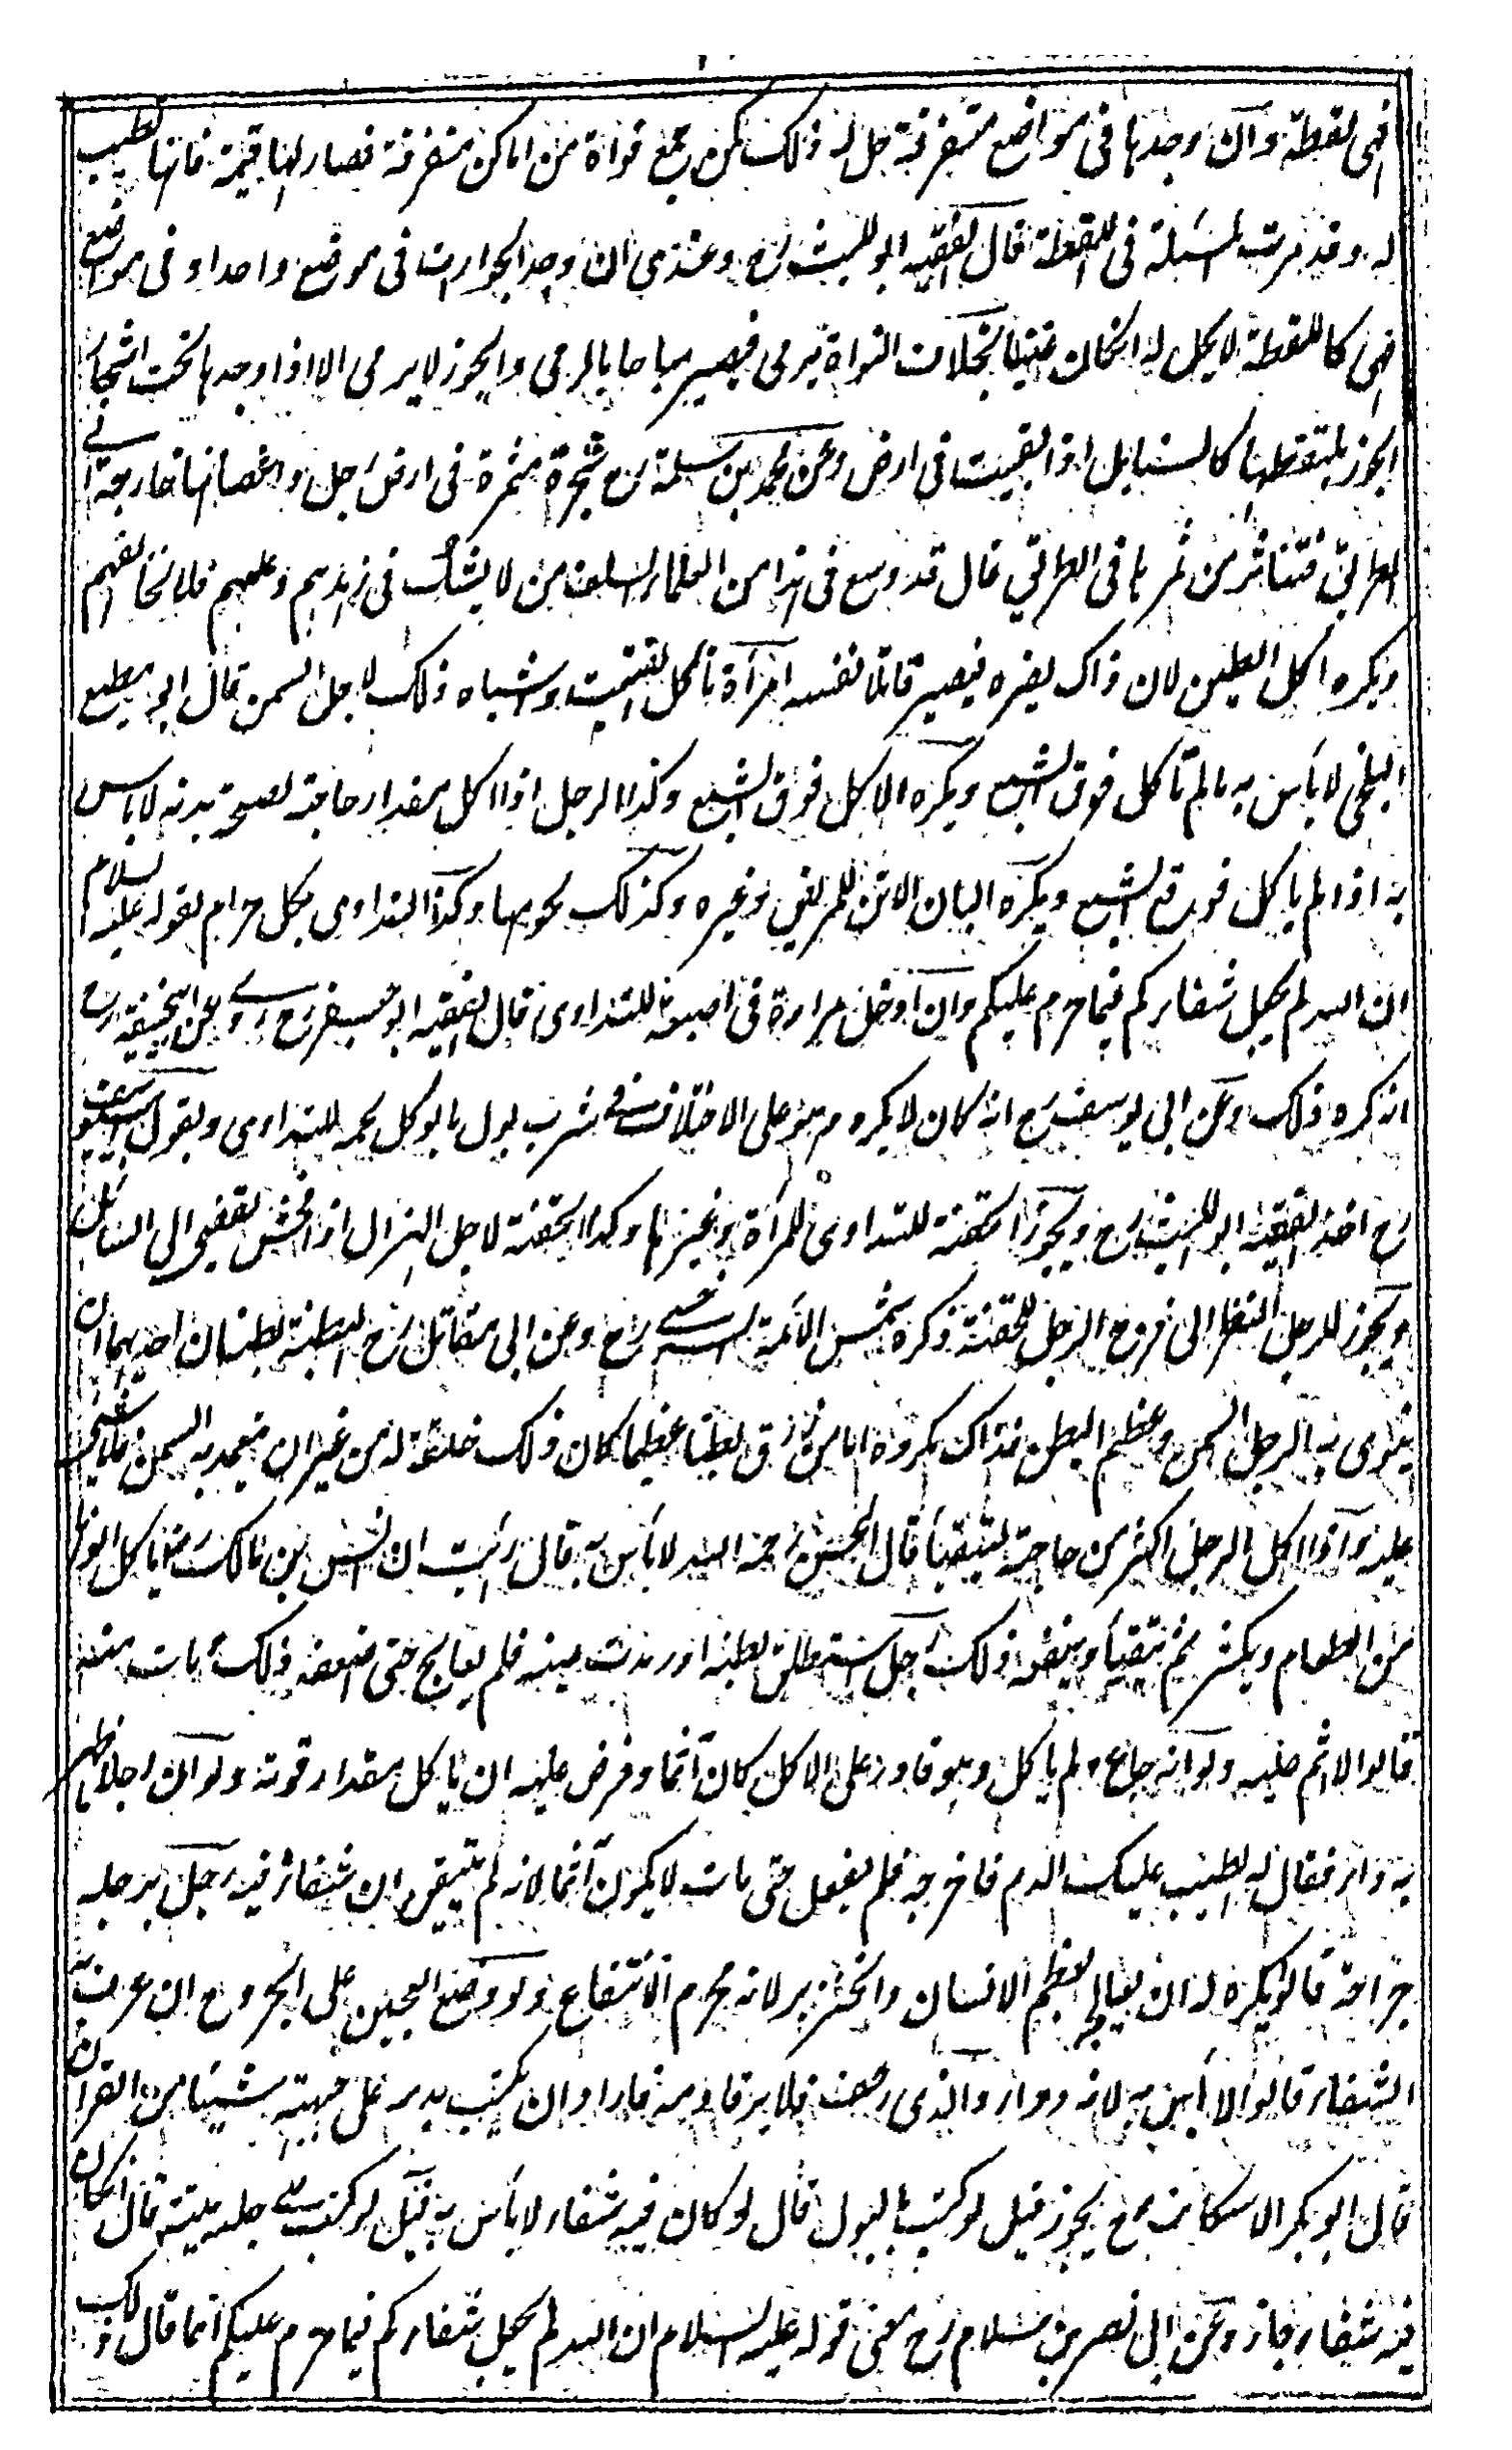 فهى لقطة وان وجدها فى مواضع متفرقة حل له ذلك كمن جمع نواة من اماكن متفرقة فصار لها قيمة فانها تطيب
له وقد مرت المسئلة فى اللقطة قال الفقيه ابو الليث رح وعندى ان وجد الجوزات فى موضع واحد او فى مواضع
فهى كاللقطة لا يحل له انكان غنيا بخلاف النواة ترمى فيصير مباحا بالرمى والجوز لا يرمى الا اذا وجدها تحت اشجار
الجوز يلتقطها كالسنابل اذا بقيت فى ارض وعن محمد بن سلمة رح شجرة مثمرة فى ارض رجل واغصانها خارجة الى
الطريق فتناثر من ثمرها فى الطريق قال قد وسع فى هذا من العلماء السلف من لا يشك فى زهدهم وعلمهم فلا نخالفهم
ويكره اكل الطين لان ذاك يضره فيصير قاتلا نفسه امرأة تأكل الفتيت واشباه ذلك لاجل السمن قال ابو مطيع
البلخى لا بأس به ما لم تأكل فوق الشبع ويكره الاكل فوق الشبع وكذا الرجل اذا اكل مقدار حاجة لصحة بدنه لا باس
به اذا لم ياكل فوق الشبع ويكره البان الاتن للمريض وغيره وكذلك لحومها وكذا التداوى بكل حرام لقوله عليه السلام
ان الله لم يجعل شفاءكم فيما حرم عليكم وان ادخل مرارة فى اصبعه للتداوى قال الفقيه ابو جعفر رح روى عن ابيحنيفة رح
انه كره ذلك وعن ابى يوسف رح انه كان لا يكره وهو على الاختلاف فى شرب بول ما يوكل لحمه للتداوى وبقول ابى يوسف
رح اخذ الفقيه ابو الليث رح ويجوز الحقنة للتداوى للمرأة وغيرها وكذا الحقنة لاجل الهزال اذا فحش يفضى الى السل
ويجوز للرجل النظر الى فرج الرجل للحقنة ذكره شمس الائمة السرخسى رح وعن ابى مقاتل رح البطنة بطنان احديهما ان
ينوى به الرجل السمن وعظم البطن فذاك مكروه اما من رزق بطنا عظيما كان ذلك خلقة له من غير ان يتعمد به السمن فلا شئ
عليه واذا اكل الرجل اكثر من حاجة ليتقيأ قال الحسن رحمه الله لا بأس به قال رئيت انس بن مالك رض ياكل الوانا
من الطعام ويكثر ثم يتقيأ وينفعه ذلك رجل استطلق بطنه او رمدت عينه فلم يعالج حتى اضعفه ذلك ومات منه
قالوا لا اثم عليه ولو انه جاع ولم ياكل وهو قادر على الاكل كان آثما وفرض عليه ان ياكل مقدار قوته ولو ان رجلا ظهر
به داء فقال له الطبيب عليك الدم فاخرجه فلم يفعل حتى مات لا يكون آثما لانه لم يتيقن ان شفاءه فيه رجل برجله
جراحة قالوا يكره له ان يعالجه بعظم الانسان والخنزير لانه محرم الانتفاع ولو وضع العجين على الجروح ان عرف به
الشفاء قالوا لا بأس به لانه دواء والذى رعف فلا يرقأ دمه فاراد ان يكتب بدمه على جبهته شيئا من القران
قال ابو بكر الاسكاف رح يجوز قيل لو كتب بالبول قال لو كان فيه شفاء لا بأس به قيل لو كتب على جلد ميتة قال انكان
فيه شفاء جاز وعن ابى نصر بن سلام رح معنى قوله عليه السلام ان الله لم يجعل شفاءكم فيما حرم عليكم انما قال ذلك